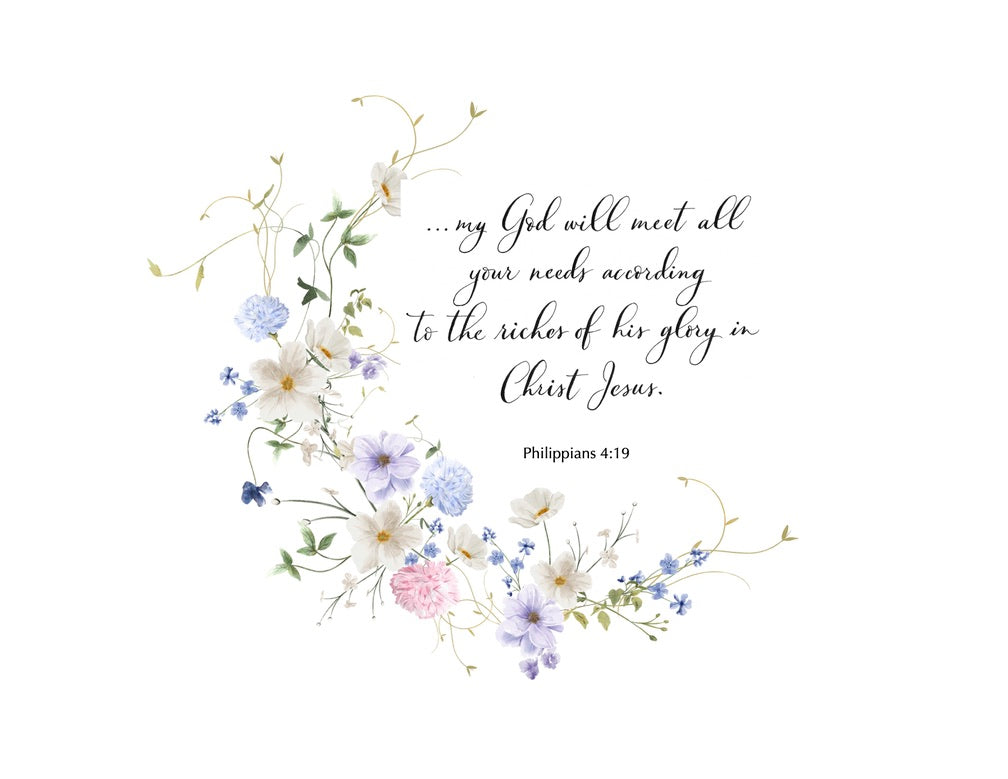 ...my God will meet all
your needs according
to the riches of his glory in
Christ Jesus.
Philippians 4:19